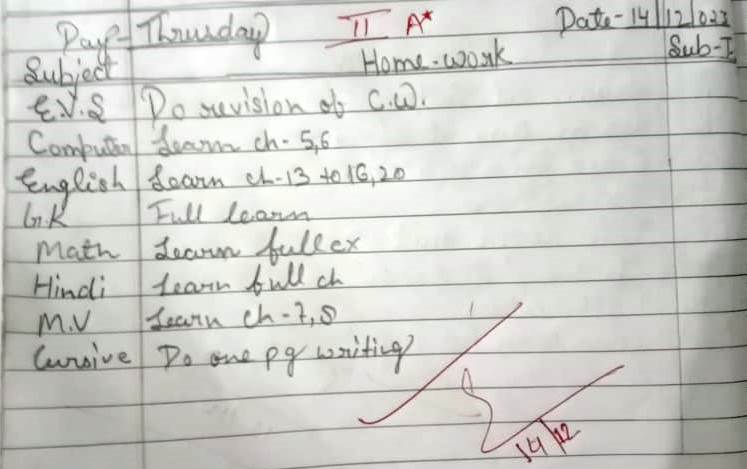 Day- Thrusday II A* Date-14/12/023
Subject Home-work Sub-I
E.V.S Do revision of C.W.
Computer Learn ch-5,6
English Learn ch-13 to 16,20
G.K Full learn
Math Learn full ex
Hindi Learn full ch
M.V Learn ch-7,8
Cursive Do one pg writing
14/12